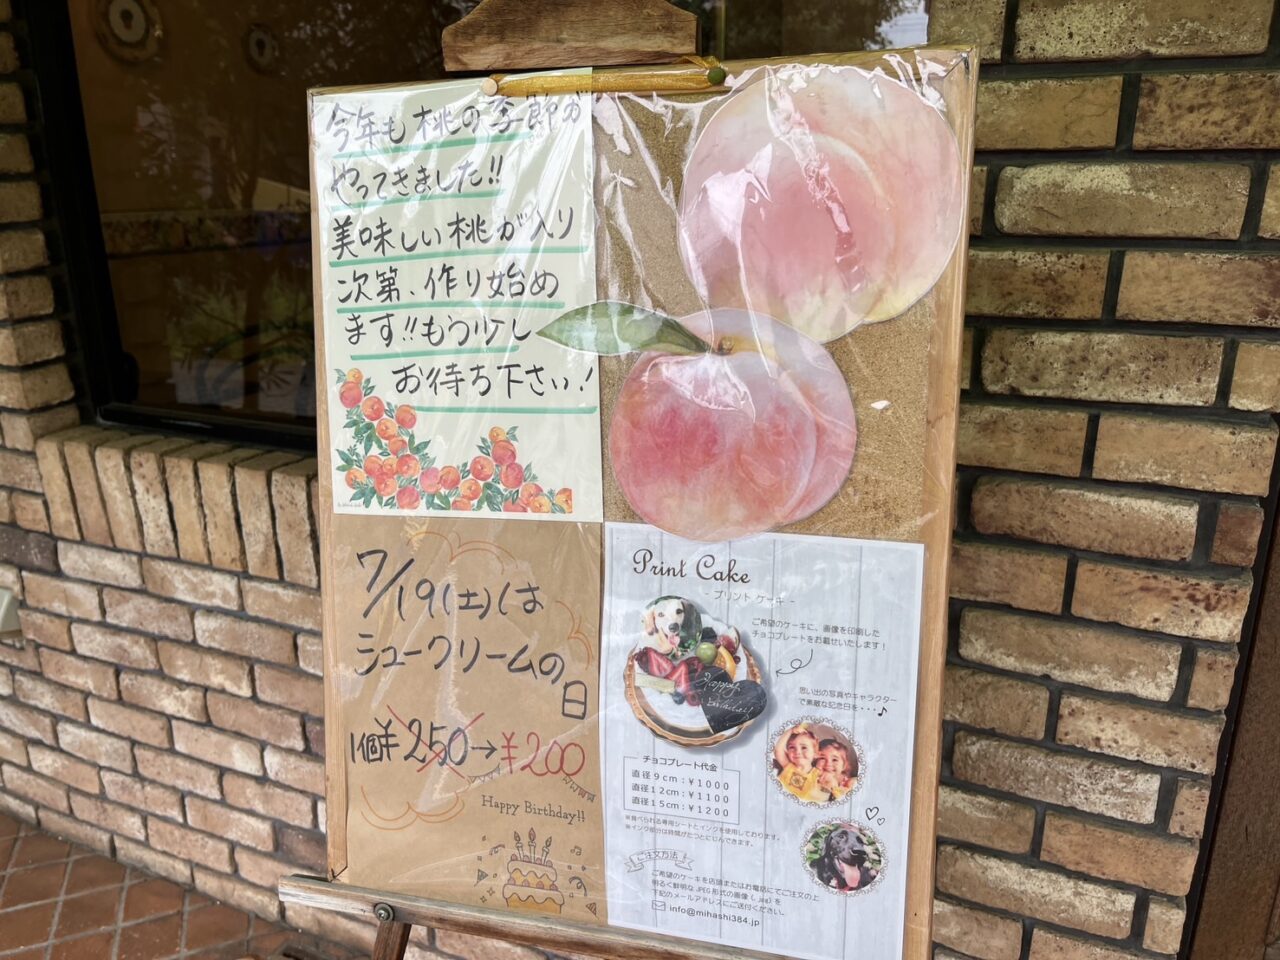 今年も桃の季節が
やってきました!!
美味しい桃が入り
次第、作り始め
ます!!もう少し
お待ち下さい!
7/19(土)は
シュークリームの
日
1個¥250→¥200
Happy Birthday!!
Print Cake
- プリント ケーキ -
ご希望のケーキに、画像を印刷した
チョコプレートをお載せいたします!
Happy
Birthday!
思い出の写真やキャラクター
で素敵な記念日を・・・♪
チョコプレート代金
直径9cm:¥1000
直径12cm:¥1100
直径15cm:¥1200
※食べられる専用シートとインクを使用しております。
※インク部分は時間がたつとにじんできます。
ご注文方法
ご希望のケーキを店頭またはお電話にてご注文の上
明るく鮮明な JPEG 形式の画像 (.jpg) を
下記のメールアドレスにご送付ください。
info@mihashi384.jp